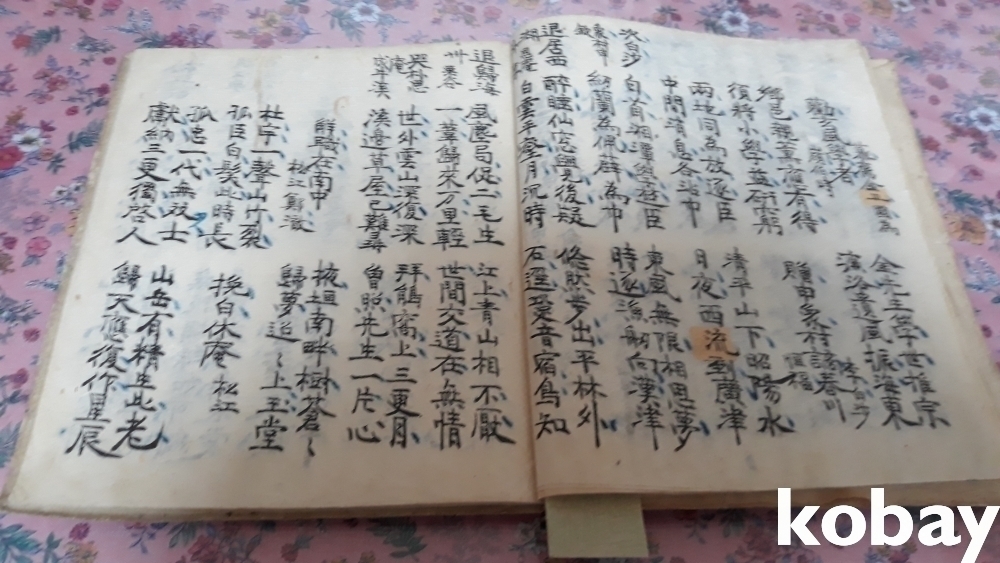 慕齋金安國
勸宜寧學者
康伯時
鄉邑種薰當有得
復將小學益研窮
兩地同為放逐臣
中間消息各沾巾
次白沙
白首相澤畔逐臣
紉蘭為佩薜為巾
退居西
醉睡仙窓覺後疑
白雲平壑月沉時
金先生學世推宗
濂洛遺風振海東
清平山下昭陽水
日夜西流到廣津
東風無限相思夢
時逐漁舠向漢津
翛然步出平林外
石逕笻音宿鳥知
退歸
風塵局促二毛生
一葉歸來万里輕
世外雲山深復深
溪邊草屋已難尋
解職在南中
松江鄭澈
杜宇一聲山竹裂
孤臣白髮此時長
孤忠一代無放士
獻納三更獨啓人
江上青山相不厭
世間交道在無情
拜鵑窩上三更月
曾照先生一片心
掖垣南畔樹蒼〻
歸夢迢〻上玉堂
挽白休庵 松江
山岳有精生此老
歸天應復作星辰
kobay